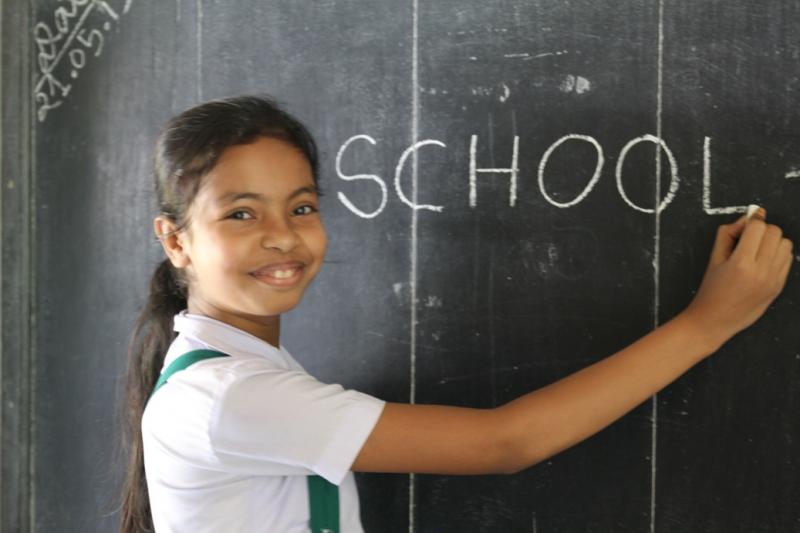 21.05.1
SCHOOL